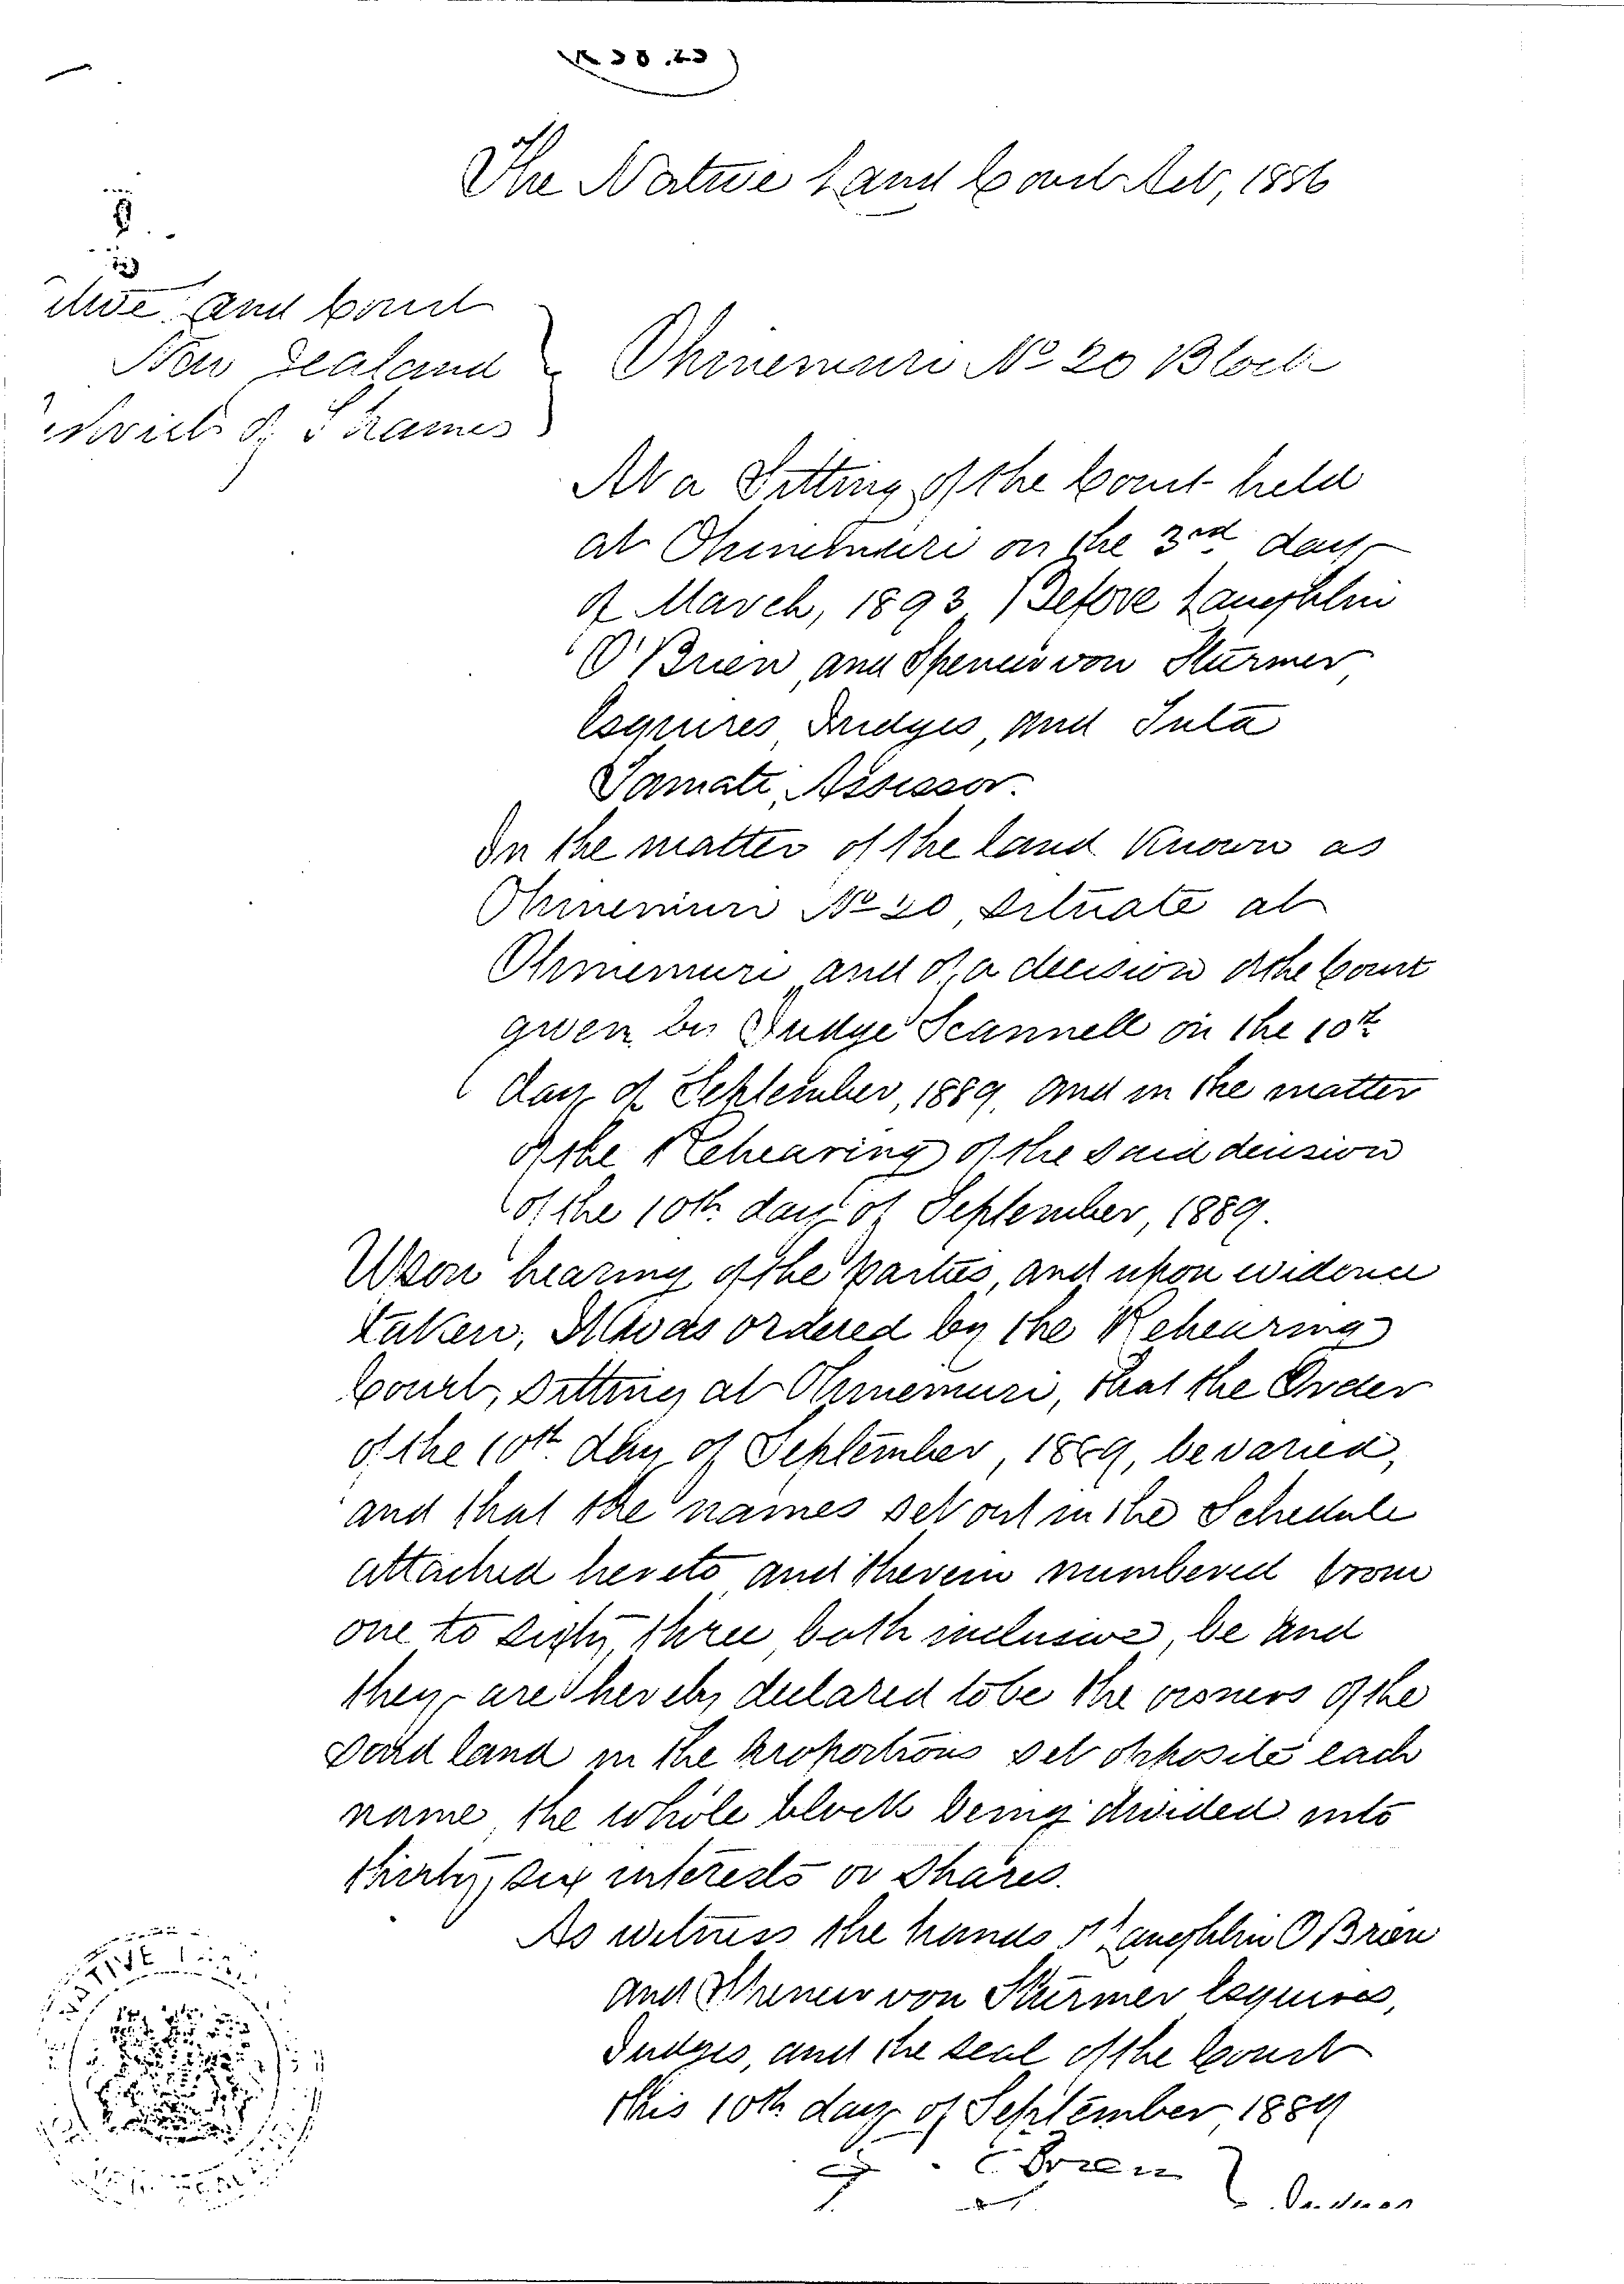 The Native Land Court Act, 1886
and Court
New Zealand
Thames
Ohinemuri No 20 Block
At a Sitting of the Court held
at Ohinemuri on the 3rd day
of March, 1893 Before Laughlin
O'Brien, and Spencer von Stürmer
Esquires Judges, and
Tamati, Assessor.
In the matter of the land known as
Ohinemuri No 20, situate at
Ohinemuri and of a decision of the Court
given by Judge Scannell on the 10th
day of September, 1889, and in the matter
of the Rehearing of the said decision
of the 10th day of September, 1889.
Upon hearing of the parties, and upon evidence
taken, It was ordered by the Rehearing
Court, sitting at Ohinemuri, that the Order
of the 10th day of September, 1889, be varied,
and that the names set out in the Schedule
attached hereto and therein numbered from
one to sixty three both inclusive, be and
they are hereby declared to be the owners of the
said land in the proportions set opposite each
name, the whole block being divided into
thirty six interests or shares.
As witness the hands of Laughlin O'Brien
and Spencer von Stürmer Esquires,
Judges, and the seal of the Court
this 10th day of September 1889